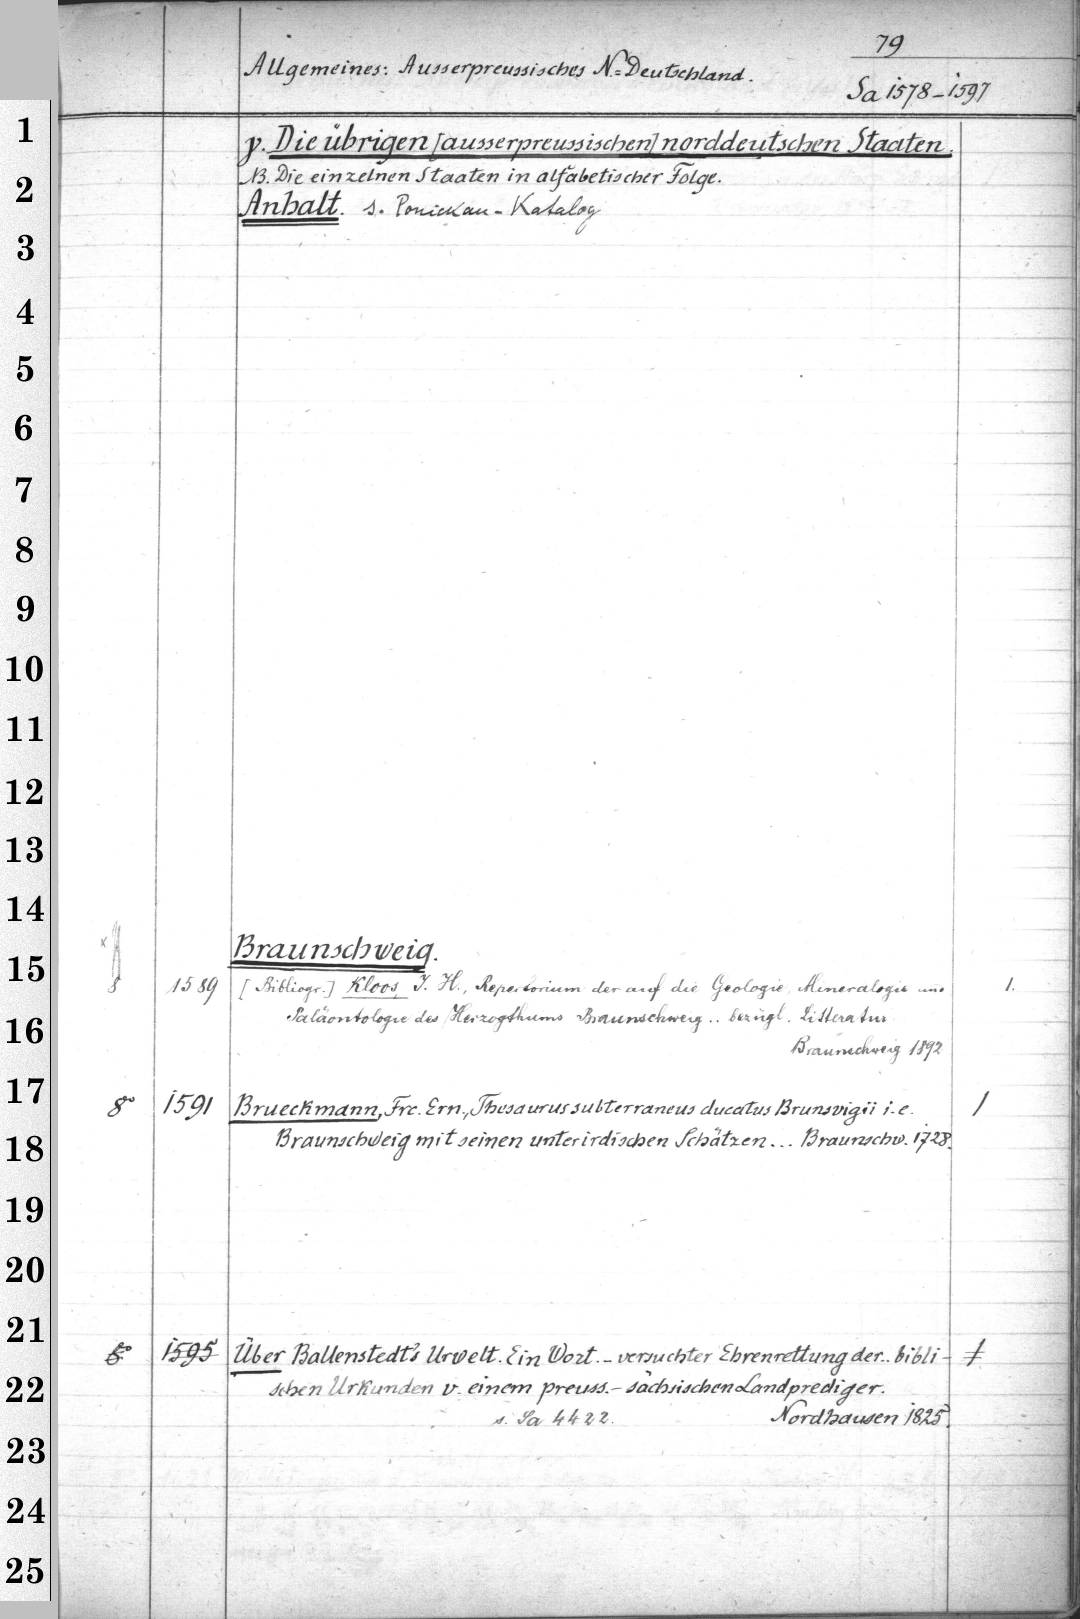 79
Allgemeines: Ausserpreussisches N.=Deutschland.
Sa 1578-1597
γ. Die übrigen [ausserpreussischen] norddeutschen Staaten.
NB. Die einzelnen Staaten in alfabetischer Folge.
Anhalt. s. Ponickau-Katalog
Braunschweig.
8 1589 [Bibliogr.] Kloos, J. H., Repertorium der auf die Geologie, Mineralogie und 1.
Paläontologie des Herzogthums Braunschweig .. bezügl. Litteratur
Braunschweig 1892
8° 1591 Brueckmann, Frc. Ern., Thesaurus subterraneus ducatus Brunsvigii i.e. 1
Braunschweig mit seinen unterirdischen Schätzen... Braunschw. 1728.
8° 1595 Über Ballenstedt's Urwelt. Ein Wort. - versuchter Ehrenrettung der.. bibli- 1
schen Urkunden v. einem preuss.-sächsischen Landprediger.
s. Sa 4422. Nordhausen 1825.
1
2
3
4
5
6
7
8
9
10
11
12
13
14
15
16
17
18
19
20
21
22
23
24
25